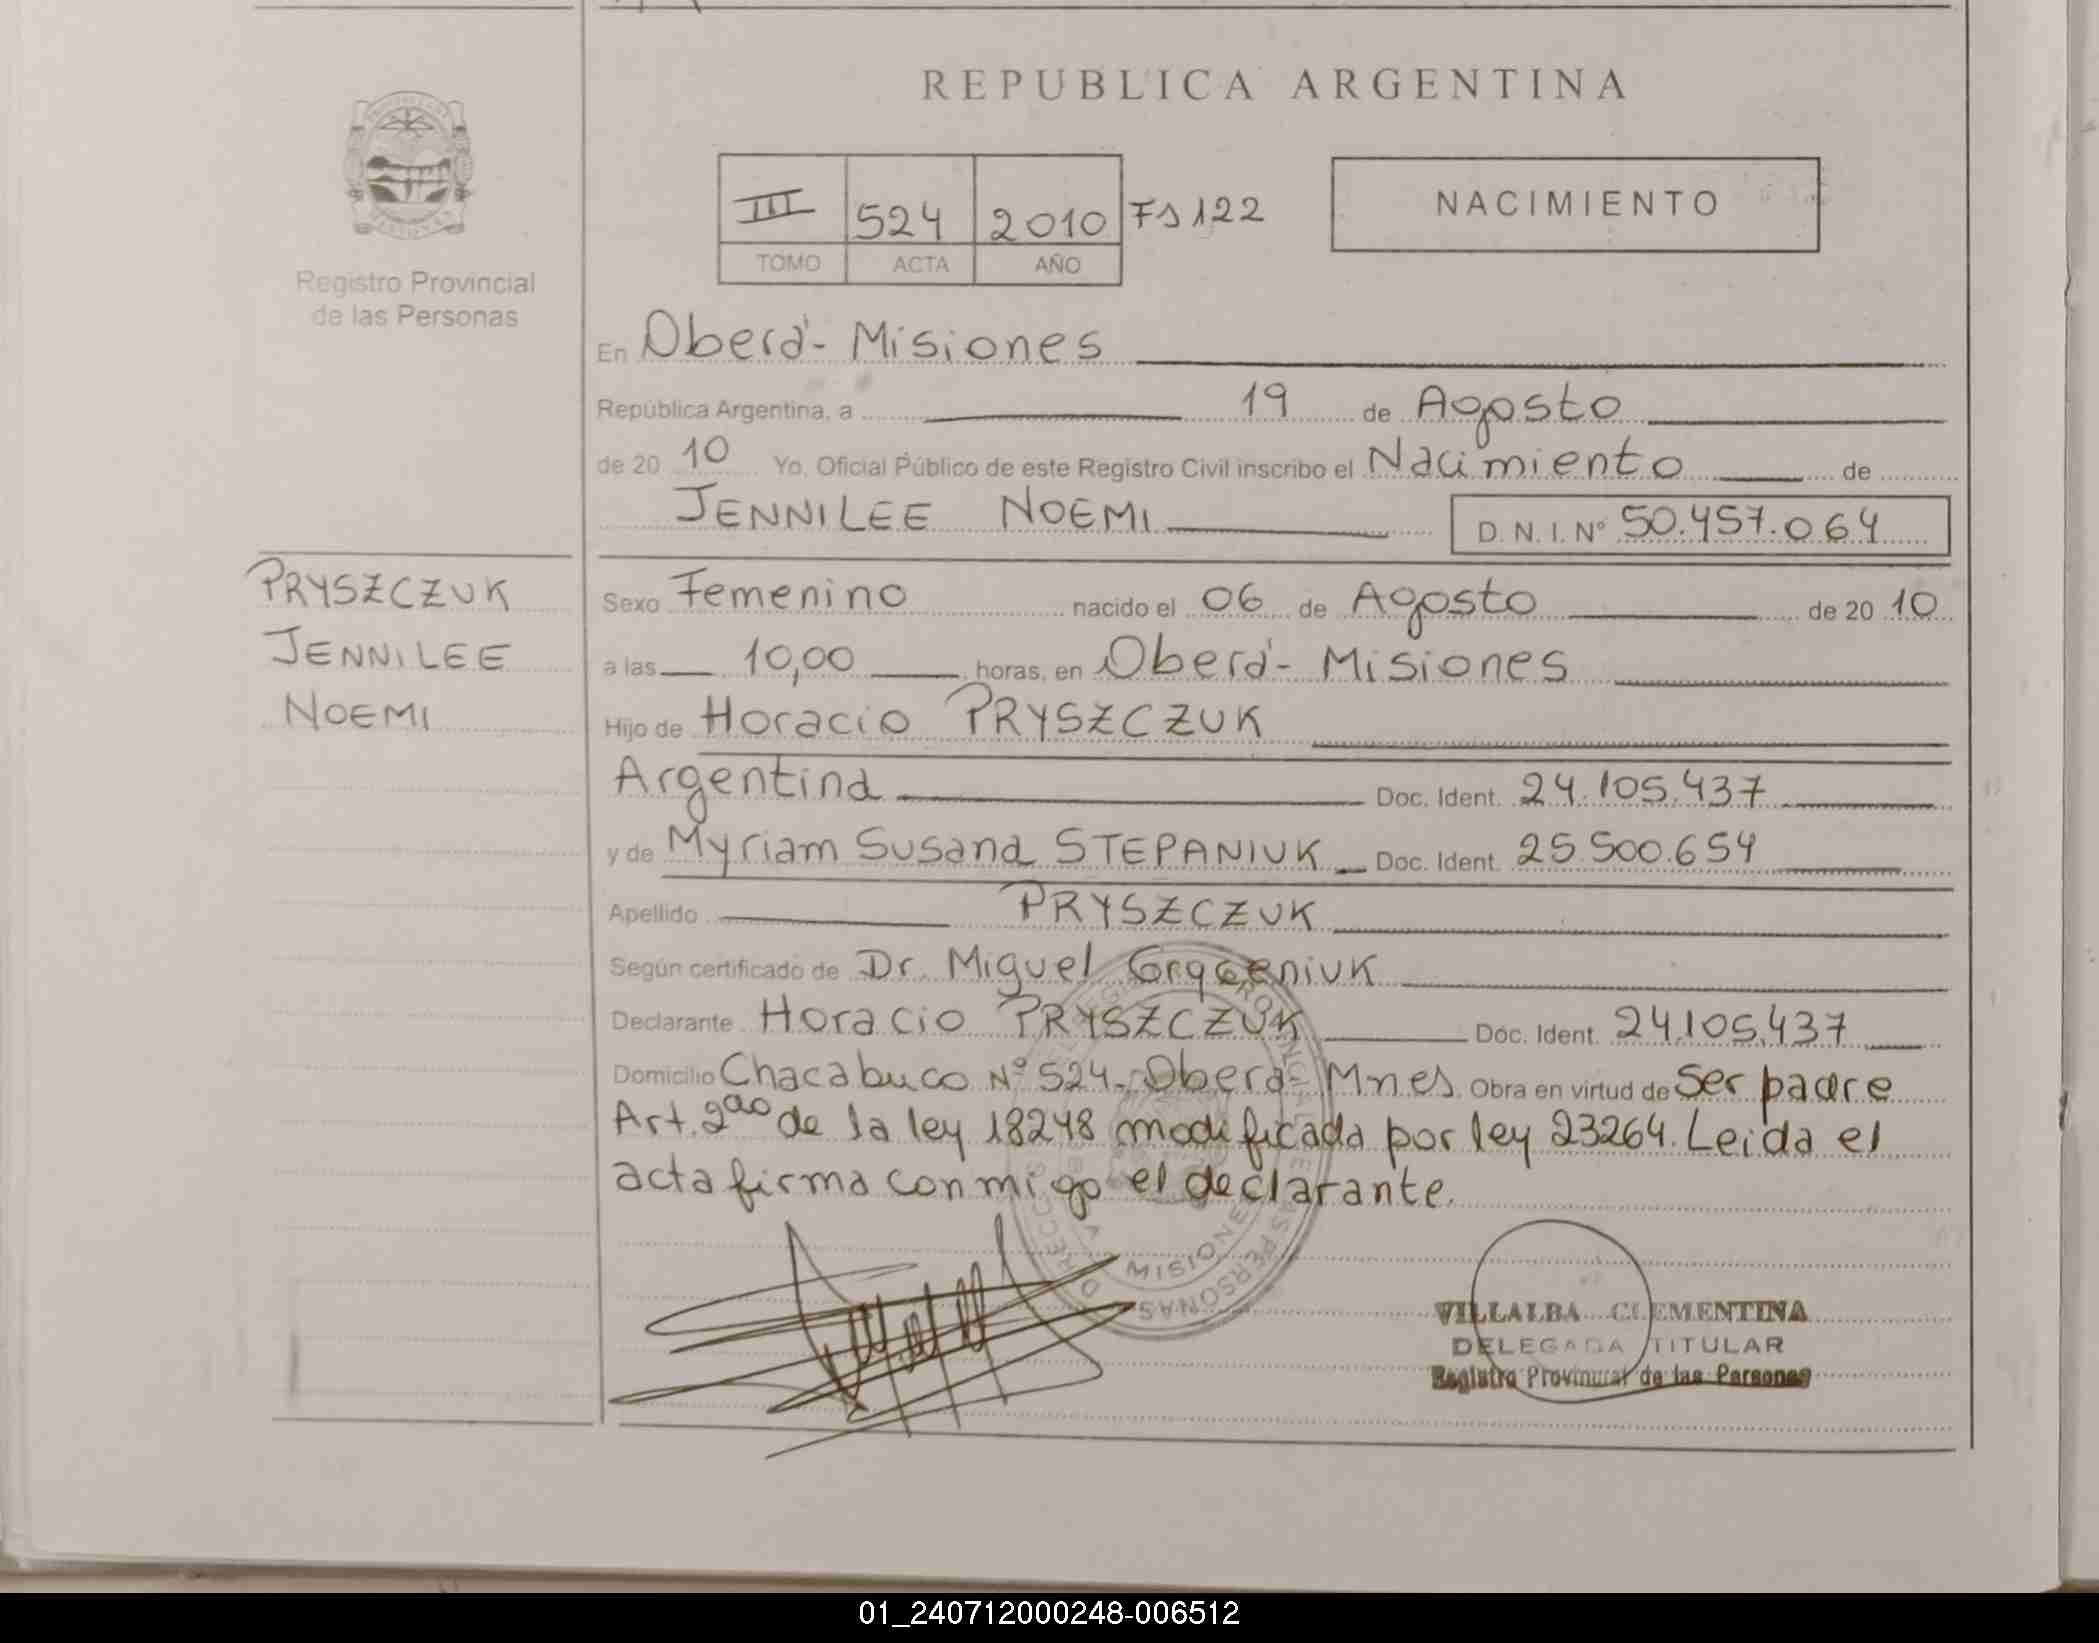 REPUBLICA ARGENTINA
III 524 2010 Fs 122
TOMO ACTA AÑO
NACIMIENTO
Registro Provincial
de las Personas
En Oberá - Misiones
República Argentina, a 19 de Agosto
de 20 10 Yo, Oficial Público de este Registro Civil inscribo el Nacimiento de
JENNILEE NOEMI D.N.I. Nº 50.457.064
PRYSZCZUK
JENNILEE
NOEMI
Sexo Femenino nacido el 06 de Agosto de 20 10
a las 10,00 horas, en Oberá - Misiones
Hijo de Horacio PRYSZCZUK
Argentina Doc. Ident. 24.105.437
y de Myriam Susana STEPANIUK Doc. Ident. 25.500.654
Apellido PRYSZCZUK
Según certificado de Dr. Miguel
Declarante Horacio PRYSZCZUK Doc. Ident. 24.105.437
Domicilio Chacabuco Nº 524 - Oberá - Mnes. Obra en virtud de Ser padre
Art. 2do de la ley 18248 modificada por ley 23264. Leida el
acta firma conmigo el declarante.
MISIONES
VILLALBA CLEMENTINA
DELEGADA TITULAR
Registro Provincial de las Personas
01_240712000248-006512